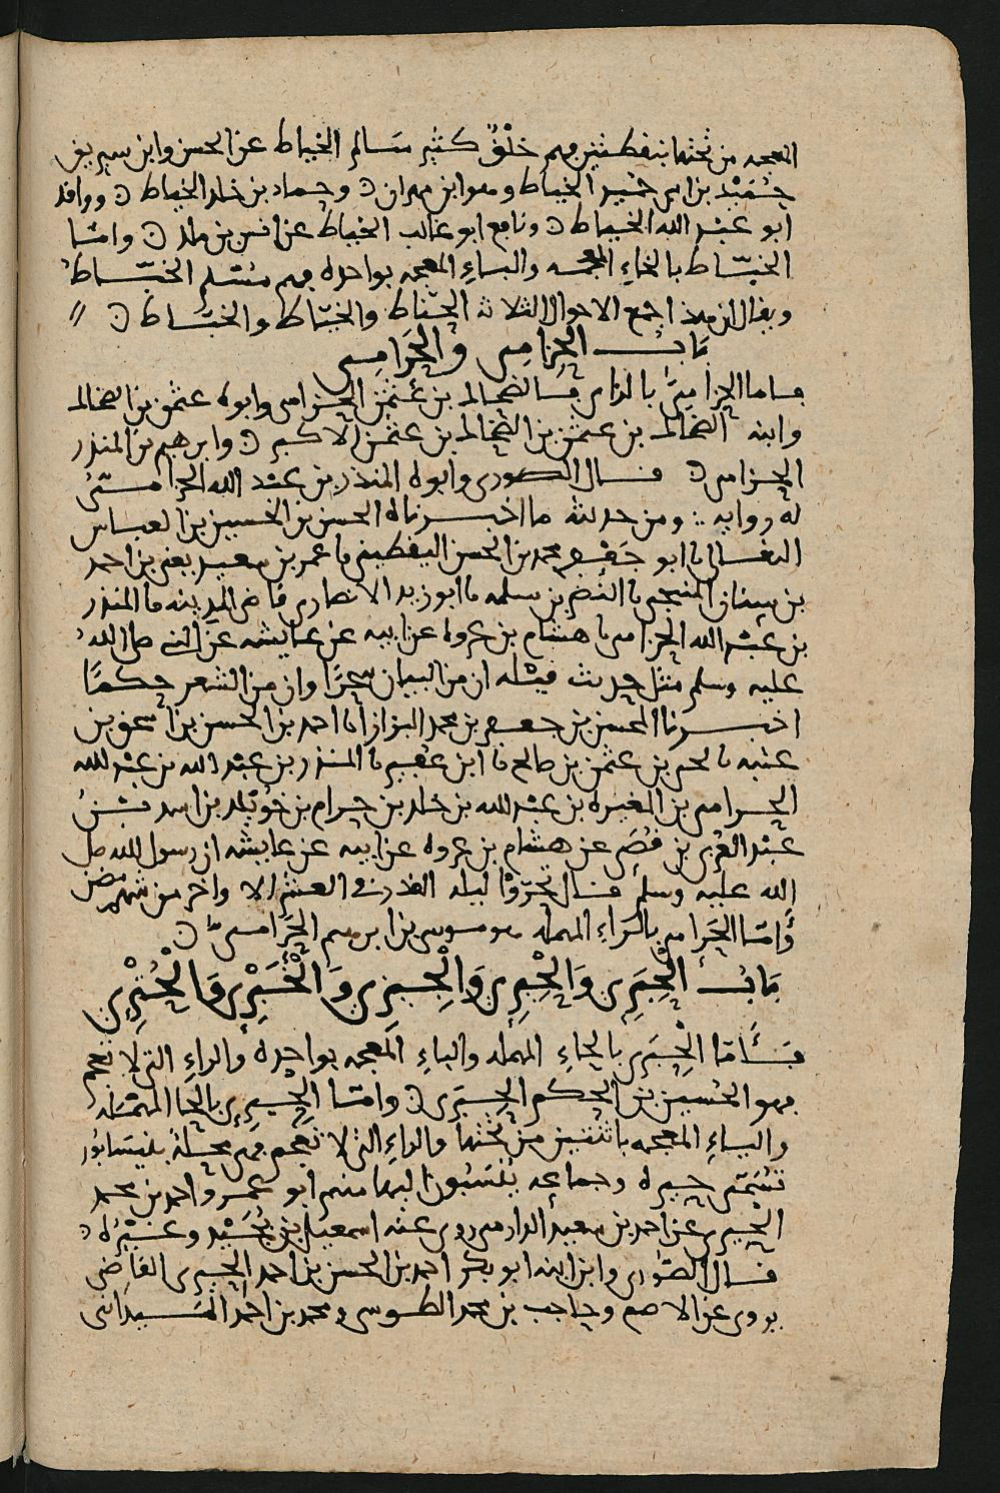 المعجمه من تحتها بنقطتين فهم خلق كثير سالم الخياط عن الحسن وابن سيرين
حميد بن ابي الخياط وهو ابن مهران وحماد بن خلد الخياط وواقد
ابو عبد الله الخياط ونافع ابو غالب الخياط عن انس بن ملك واما
الخبّاط بالخاءِ المعجمه والباءِ المعجمه بواحده فهم مسلم الخبّاط
ويقال ان هذا اجمع الاحوال الثلاث الحنّاط والخيّاط والخبّاط
باب الحِزامي والحَرامي
فاما الحِزامي بالزاي فالضحاك بن عثمن الحزامي وابوه عثمن بن الضحاك
وابنه الضحاك بن عثمن بن الضحاك بن عثمن الاكبر وابرهيم بن المنذر
الحزامي قال الصوري وابوه المنذر بن عبد الله الحزامي
له روايه ومن حديثه ما اخبرناه الحسن بن الحسين بن العباس
النعالي نا ابو جعفر محمد بن الحسن اليقطيني نا عمر بن سعيد يعني بن احمد
بن سنان المنبجي نا النضر بن سلمه نا ابو زيد الانصاري قاضي المدينه نا المنذر
بن عبد الله الحزامي نا هشام بن عروه عن ابيه عن عايشه عن النبي صلى الله
عليه وسلم مثل حديث قبله ان من البيان سحرًا وان من الشعر حكمًا
اخبرنا الحسن بن جعفر بن محمد البزاز انا احمد بن الحسن بن اسحق بن
عتبه نا يحيى بن عثمن بن صالح نا ابن عفير نا المنذر بن عبد الله بن عبد الله
الحزامي بن المغيره بن عبد الله بن خلد بن حزام بن خويلد بن اسد بن
عبد العزى بن قصي عن هشام بن عروه عن ابيه عن عايشه ان رسول الله صلى
الله عليه وسلم قال تحرّوا ليله القدر في العشر الاواخر من شهر رمضن
وامّا الحَرامي بالراءِ المهمله فهو موسى بن ابرهيم الحَرامي
باب الحِبَرِي وَالحِيْرِي وَالجيزي وَالخَيْبَرِي وَالحُتْرِي
فأَما الحِبَري بالحاءِ المهمله والباءِ المعجمه بواحده والراءِ التي لا تعجم
فهو الحسين بن الحكم الحِبَري وامّا الحِيري بالحا المهمله
والياءِ المعجمه باثنتين من تحتها والراءِ التي لا تعجم فهي محلّه بنيسابور
تُسَمّى حيره وجماعه يُنسَبُون اليها منهم ابو عمرو احمد بن محمد
الحيري عن احمد بن سعيد الدارمي روى عنه اسمعيل بن نُجَيْد وغيره
قال الصُّوري وابن ابنه ابو بكر احمد بن الحسن بن احمد الحيري القاضي
يروي عن الاصم وحاجب بن محمد الطوسي ومحمد بن احمد الميداني